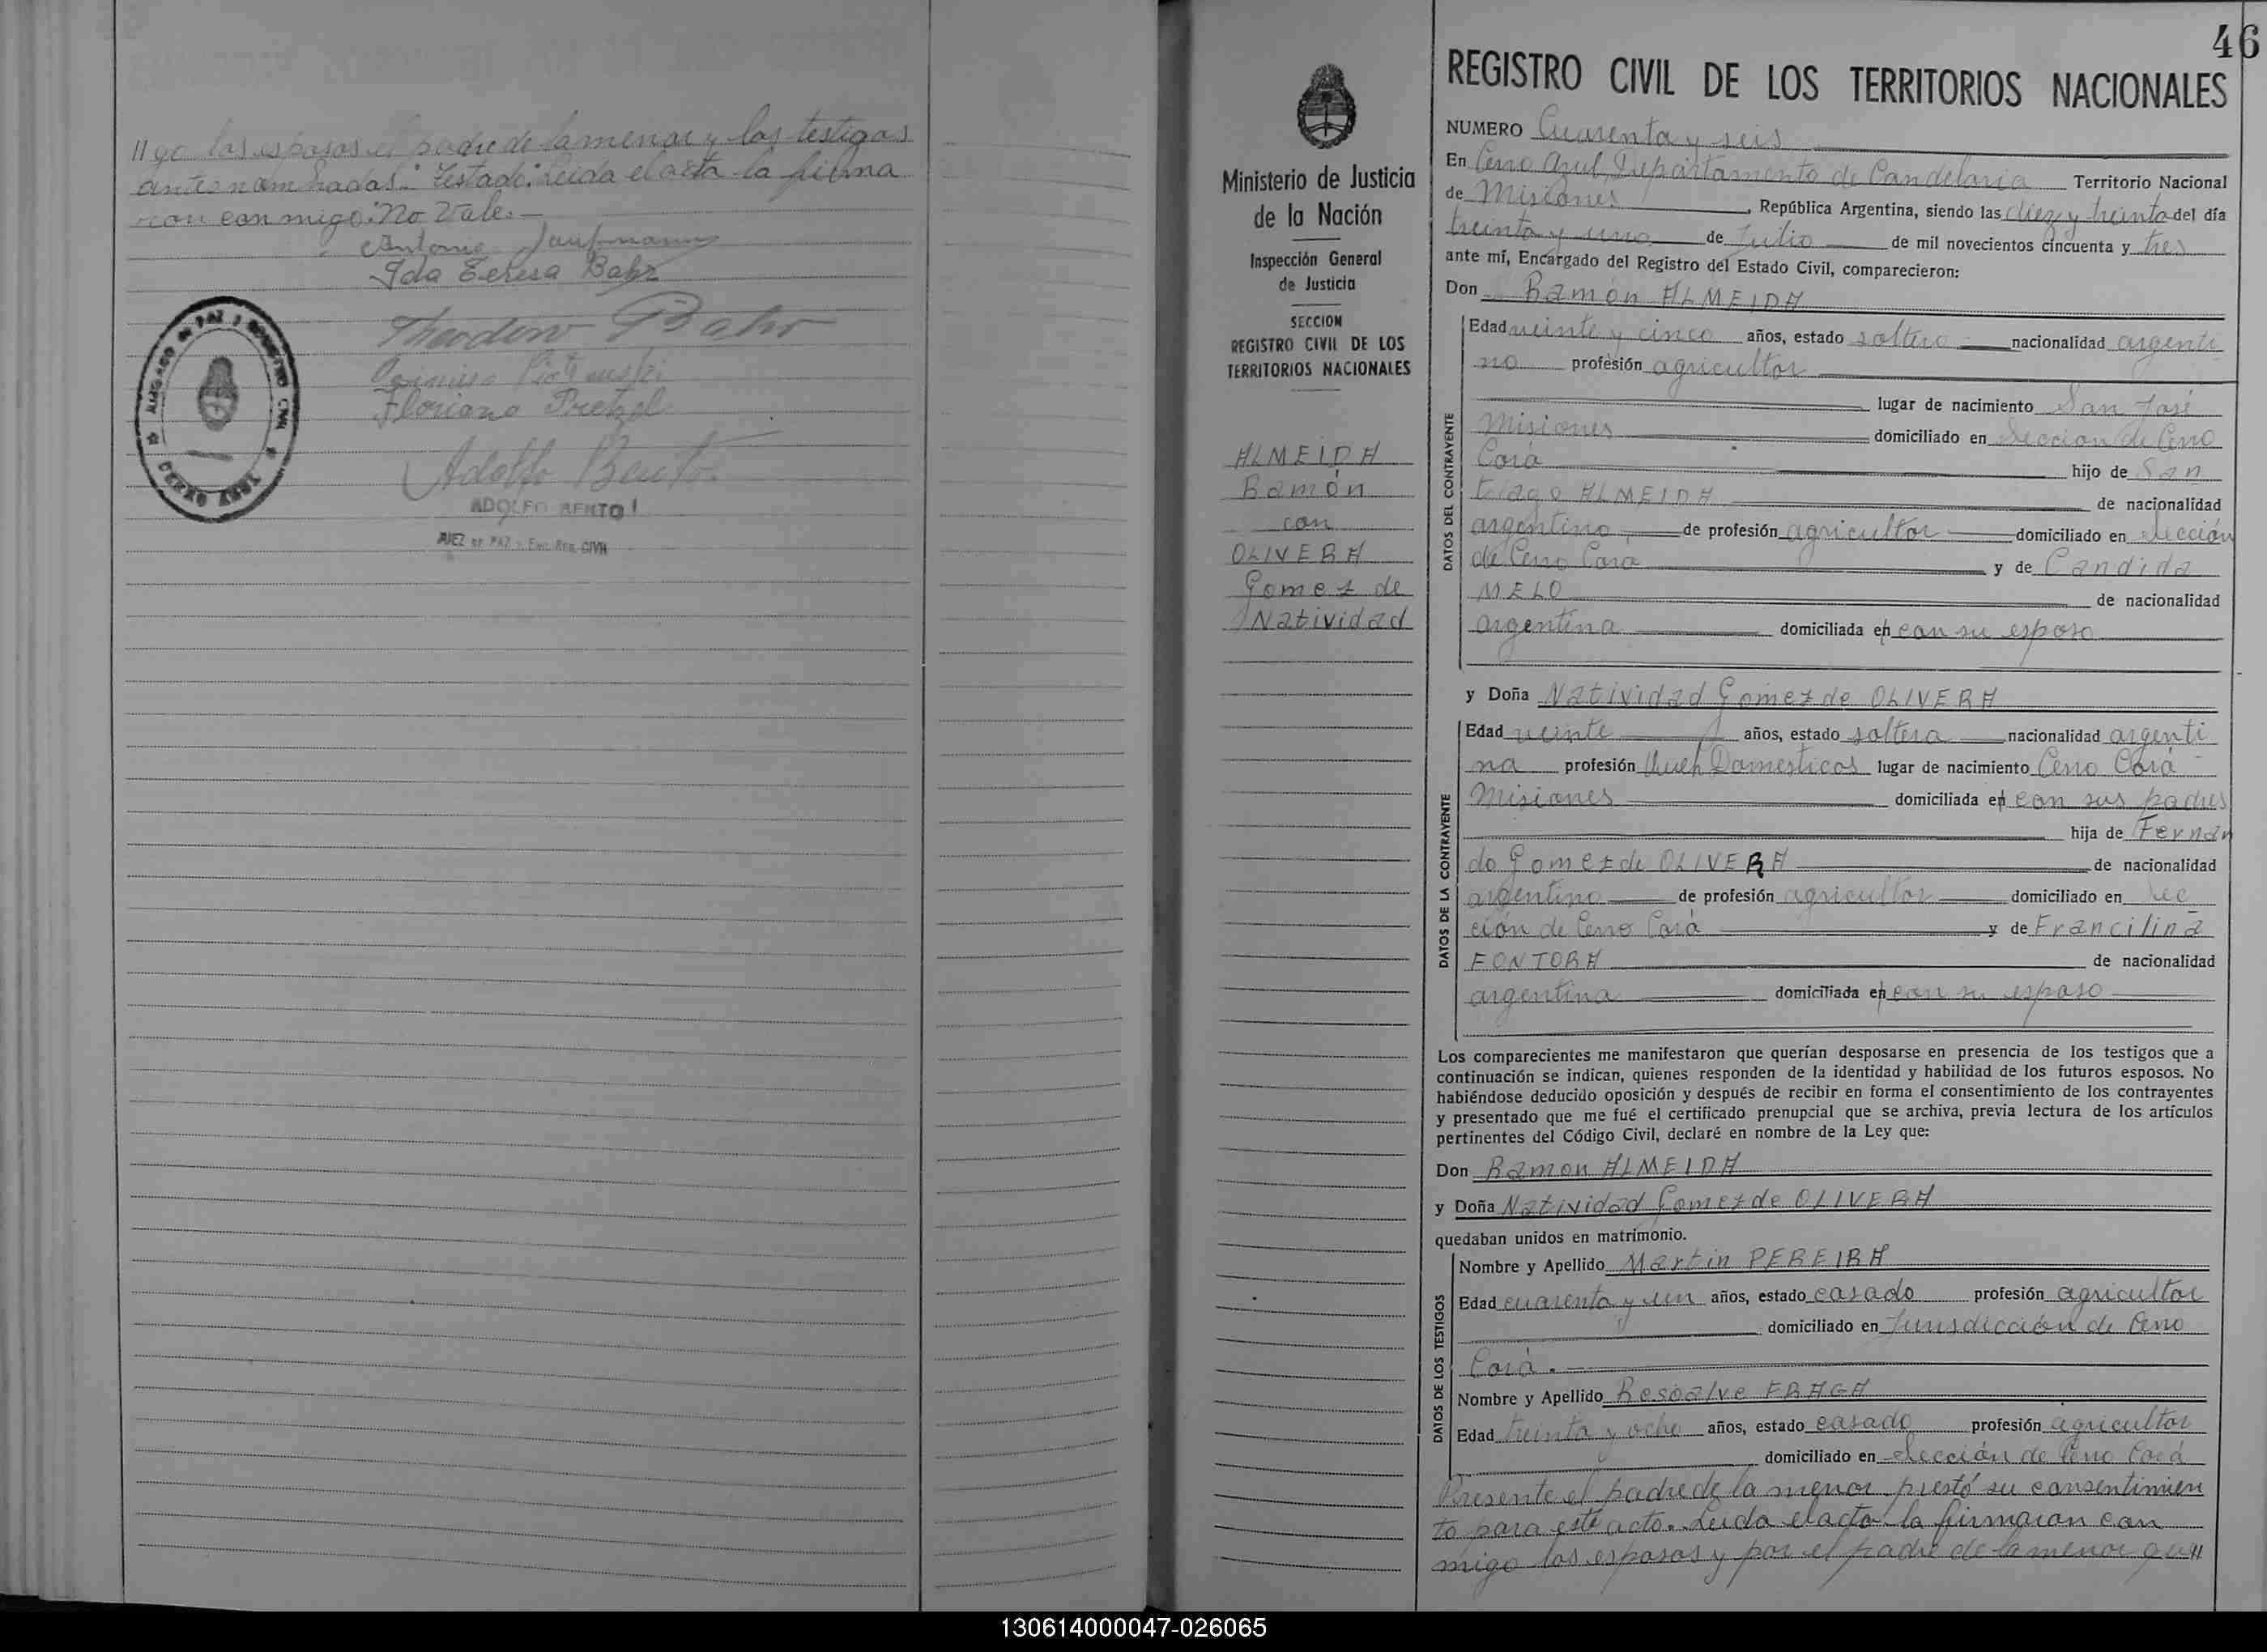 //go los esposos el padre de la menor y los testigos
antes nombrados.: Testado: Leida el acta la firma
ron conmigo: No Vale.—
Antonio
Ida Teresa Bahr
Theodoro Bahr
Floriano Pretzel
Adolfo Bento
ADOLFO BENTO
JUEZ DE PAZ y Enc. Reg. CIVIL
JUZGADO DE PAZ Y REGISTRO CIVIL
CERRO AZUL
46
Ministerio de Justicia
de la Nación
Inspección General
de Justicia
SECCION
REGISTRO CIVIL DE LOS
TERRITORIOS NACIONALES
ALMEIDA
Ramón
con
OLIVERA
Gomez de
Natividad
REGISTRO CIVIL DE LOS TERRITORIOS NACIONALES
NUMERO Cuarenta y seis
En Cerro Azul, Departamento de Candelaria Territorio Nacional
de Misiones, República Argentina, siendo las diez y treinta del día
treinta y uno de Julio de mil novecientos cincuenta y tres
ante mí, Encargado del Registro del Estado Civil, comparecieron:
Don Ramón ALMEIDA
DATOS DEL CONTRAYENTE
Edad veinte y cinco años, estado soltero nacionalidad argenti
no profesión agricultor
lugar de nacimiento San José
Misiones domiciliado en Sección de Cerro
Corá hijo de San
tiago ALMEIDA de nacionalidad
argentino, de profesión agricultor domiciliado en sección
de Cerro Corá y de Candida
MELO de nacionalidad
argentina domiciliada en con su esposo
y Doña Natividad Gomez de OLIVERA
DATOS DE LA CONTRAYENTE
Edad veinte años, estado soltera nacionalidad argenti
na profesión Queh. Domesticos lugar de nacimiento Cerro Corá
Misiones domiciliada en con sus padres
hija de Fernan
do Gomez de OLIVERA de nacionalidad
argentino de profesión agricultor domiciliado en Sec
ción de Cerro Corá y de Francilina
FONTORA de nacionalidad
argentina domiciliada en con su esposo
Los comparecientes me manifestaron que querían desposarse en presencia de los testigos que a
continuación se indican, quienes responden de la identidad y habilidad de los futuros esposos. No
habiéndose deducido oposición y después de recibir en forma el consentimiento de los contrayentes
y presentado que me fué el certificado prenupcial que se archiva, previa lectura de los artículos
pertinentes del Código Civil, declaré en nombre de la Ley que:
Don Ramon ALMEIDA
y Doña Natividad Gomez de OLIVERA
quedaban unidos en matrimonio.
DATOS DE LOS TESTIGOS
Nombre y Apellido Martin PEREIRA
Edad cuarenta y un años, estado casado profesión agricultor
domiciliado en Jurisdicción de Cerro
Corá.
Nombre y Apellido Resoalve FRAGA
Edad treinta y ocho años, estado casado profesión agricultor
domiciliado en Sección de Cerro Corá
Presente el padre de la menor prestó su consentimien
to para este acto. Leida el acta la firmaron con
migo los esposos y por el padre de la menor qu//
130614000047-026065